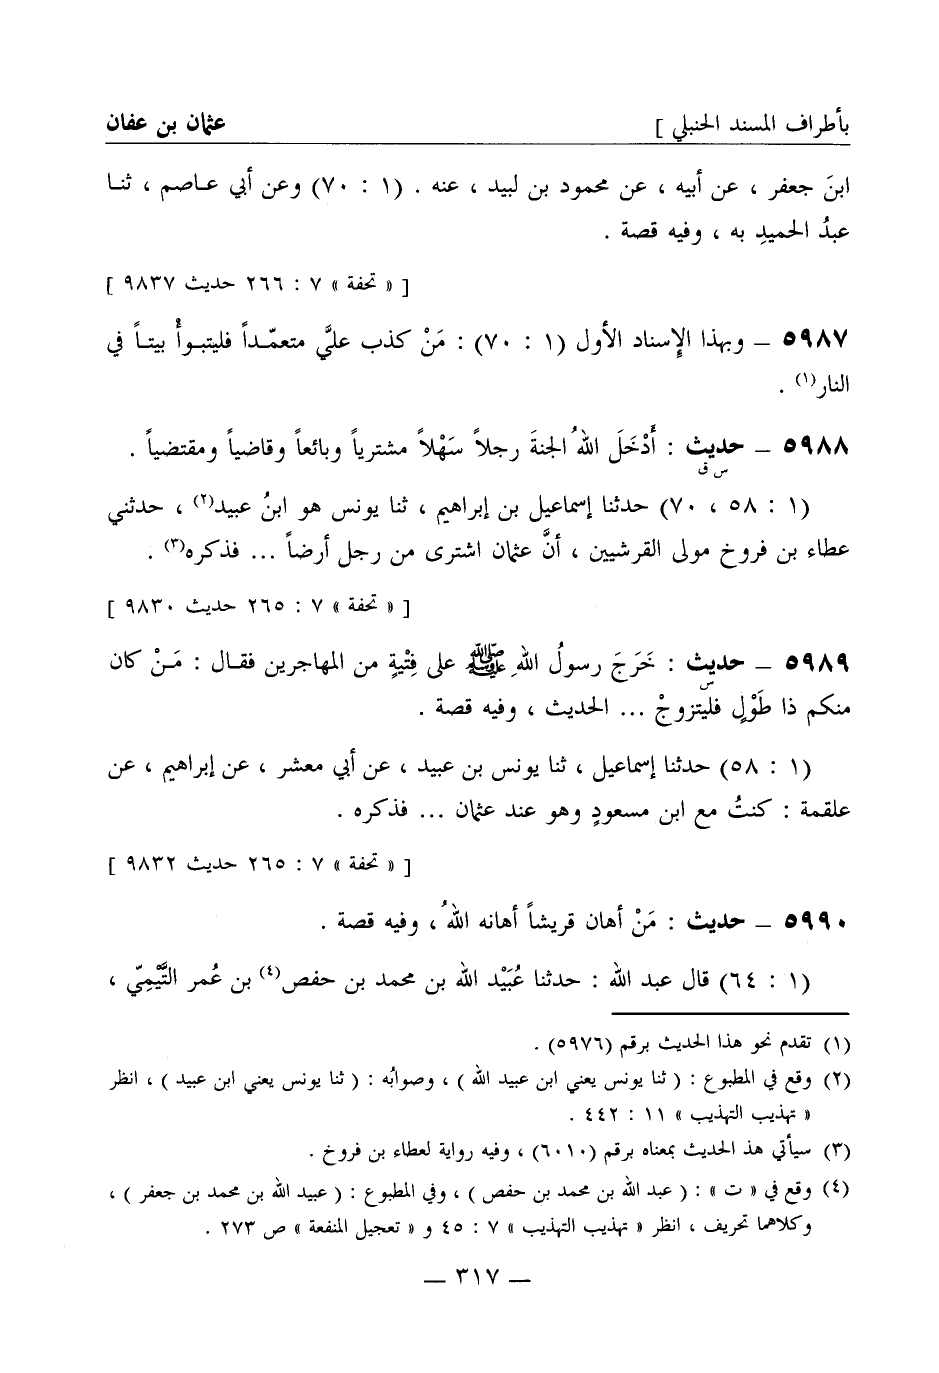 بأطراف المسند الحنبلي ] عثمان بن عفان
ابنَ جعفر ، عن أبيه ، عن محمود بن لبيد ، عنه . (١ : ٧٠) وعن أبي عـاصم ، ثنـا
عبدُ الحميدِ به ، وفيه قصة .
[ « تحفة » ٧ : ٢٦٦ حديث ٩٨٣٧ ]
٥٩٨٧ ــ وبهذا الإسناد الأول (١ : ٧٠) : مَنْ كذب عليَّ متعمّـداً فليتبـوأْ بيتـاً في
النار(١) .
٥٩٨٨ ــ حديث : أَدْخَلَ اللهُ الجنةَ رجلاً سَهْلاً مشترياً وبائعاً وقاضياً ومقتضياً .
س ق
(١ : ٥٨ ، ٧٠) حدثنا إسماعيل بن إبراهيم ، ثنا يونس هو ابنُ عبيد(٢) ، حدثني
عطاء بن فروخ مولى القرشيين ، أنَّ عثمان اشترى من رجل أرضاً ... فذكره(٣) .
[ « تحفة » ٧ : ٢٦٥ حديث ٩٨٣٠ ]
٥٩٨٩ ــ حديث : خَرَجَ رسولُ اللهِ ﷺ على فِتْيةٍ من المهاجرين فقـال : مَـنْ كان
س
منكم ذا طَوْلٍ فليتزوجْ ... الحديث ، وفيه قصة .
(١ : ٥٨) حدثنا إسماعيل ، ثنا يونس بن عبيد ، عن أبي معشر ، عن إبراهيم ، عن
علقمة : كنتُ مع ابن مسعودٍ وهو عند عثمان ... فذكره .
[ « تحفة » ٧ : ٢٦٥ حديث ٩٨٣٢ ]
٥٩٩٠ ــ حديث : مَنْ أهان قريشاً أهانه اللهُ ، وفيه قصة .
(١ : ٦٤) قال عبد الله : حدثنا عُبَيْد الله بن محمد بن حفص(٤) بن عُمر التَّيْمِيّ ،
(١) تقدم نحو هذا الحديث برقم (٥٩٧٦) .
(٢) وقع في المطبوع : ( ثنا يونس يعني ابن عبيد الله ) ، وصوابُه : ( ثنا يونس يعني ابن عبيد ) ، انظر
« تهذيب التهذيب » ١١ : ٤٤٢ .
(٣) سيأتي هذ الحديث بمعناه برقم (٦٠١٠) ، وفيه رواية لعطاء بن فروخ .
(٤) وقع في « ت » : ( عبد الله بن محمد بن حفص ) ، وفي المطبوع : ( عبيد الله بن محمد بن جعفر ) ،
وكلاهما تحريف ، انظر « تهذيب التهذيب » ٧ : ٤٥ و « تعجيل المنفعة » ص ٢٧٣ .
ــ ٣١٧ ــ